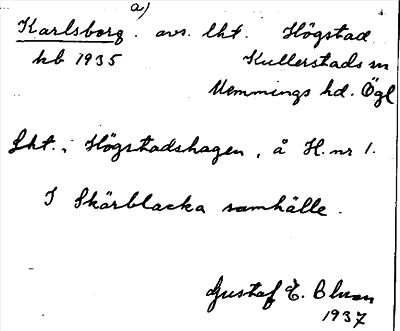 a)
Karlsborg. avs. lht. Högstad
kb 1935 Kullerstads sn
Memmings hd. Ögl
Lht. i Högstadshagen, å H. nr 1.
I Skärblacka samhälle.
Gustaf E. Blman
1937